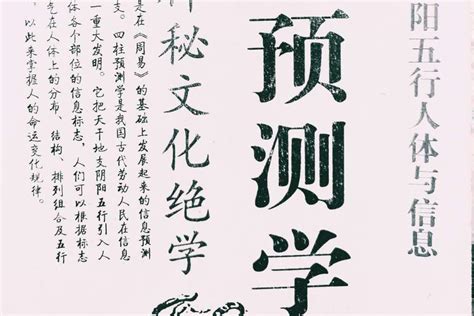 阳五行人体与信息
预测学
神秘文化绝学
是在《周易》的基础上发展起来的信息预测
支。四柱预测学是我国古代劳动人民在信息
一重大发明。它把天干地支阴阳五行引入人
体各个部位的信息标志，人们可以根据标志
气在人体上的分布、结构、排列组合及五行
，以此来掌握人的命运变化规律。